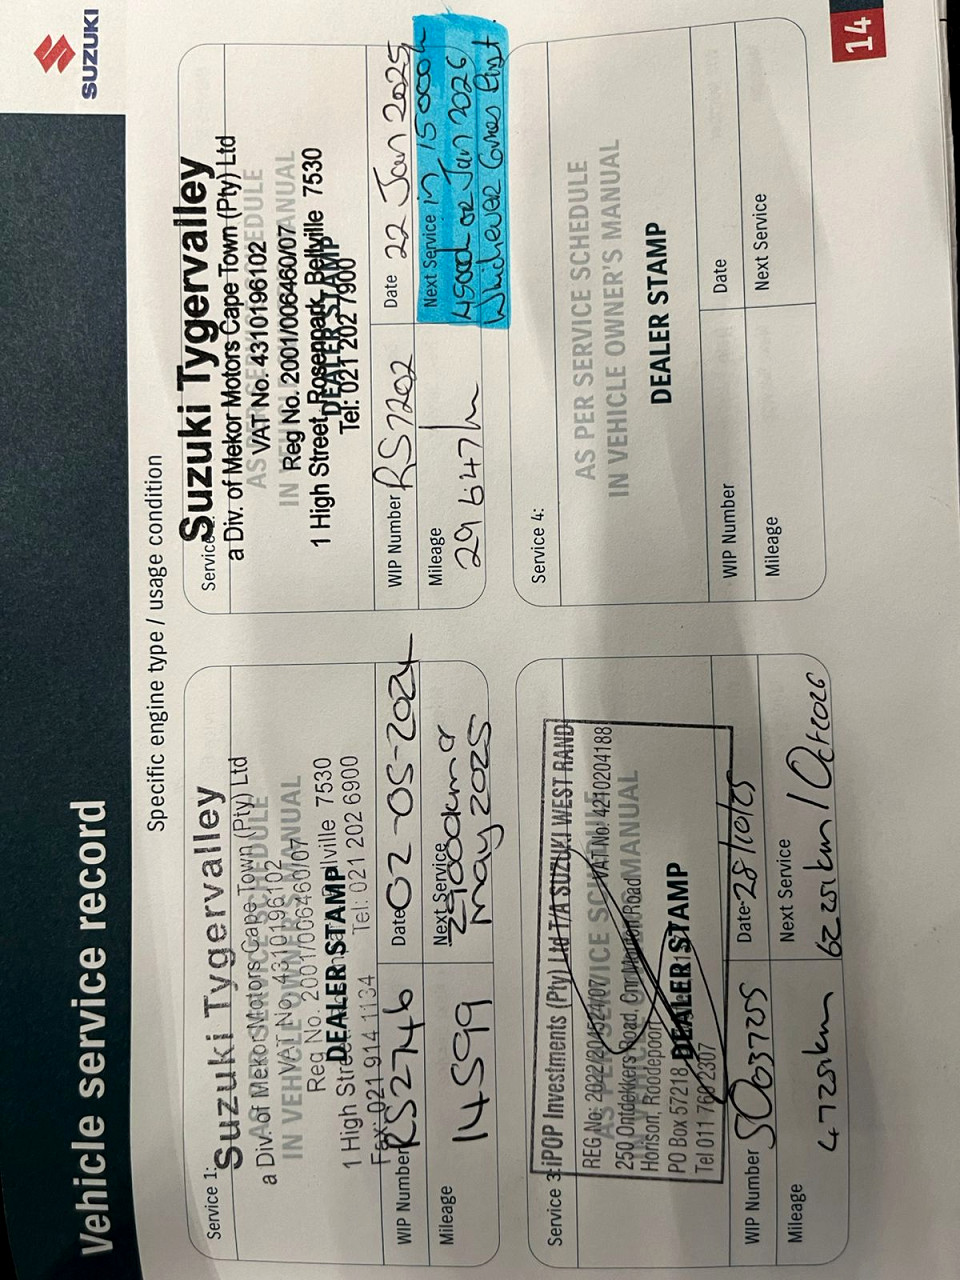 SUZUKI
Vehicle service record
Specific engine type / usage condition
Service 1:
AS PER SERVICE SCHEDULE
IN VEHICLE OWNER'S MANUAL
DEALER STAMP
Suzuki Tygervalley
a Div. of Mekor Motors Cape Town (Pty) Ltd
VAT No. 4310196102
Reg No. 2001/006460/07
1 High Street, Bellville 7530
Fax: 021 914 1134 Tel: 021 202 6900
WIP Number RS2746
Date 02-05-2024
Mileage
14599
Next Service
29000km or
May 2025
Service
AS PER SERVICE SCHEDULE
IN VEHICLE OWNER'S MANUAL
DEALER STAMP
Suzuki Tygervalley
a Div. of Mekor Motors Cape Town (Pty) Ltd
VAT No. 4310196102
Reg No. 2001/006460/07
1 High Street, Rosenpark, Bellville 7530
Tel: 021 202 7900
WIP Number RS7202
Date 22 Jan 2025
Mileage
29647k
Next Service in 15000k
45000k or Jan 2026
Whichever Comes First
Service 3:
AS PER SERVICE SCHEDULE
IN VEHICLE OWNER'S MANUAL
DEALER STAMP
iPOP Investments (Pty) Ltd T/A SUZUKI WEST RAND
REG No: 2022/204524/07 VAT No: 4210204188
250 Ontdekkers Road, Cnr Morton Road
Horison, Roodepoort
PO Box 57218
Tel 011 760 2307
WIP Number SO03725
Date 28/10/25
Mileage
47251km
Next Service
62251km / Oct 2026
Service 4:
AS PER SERVICE SCHEDULE
IN VEHICLE OWNER'S MANUAL
DEALER STAMP
WIP Number
Date
Mileage
Next Service
14